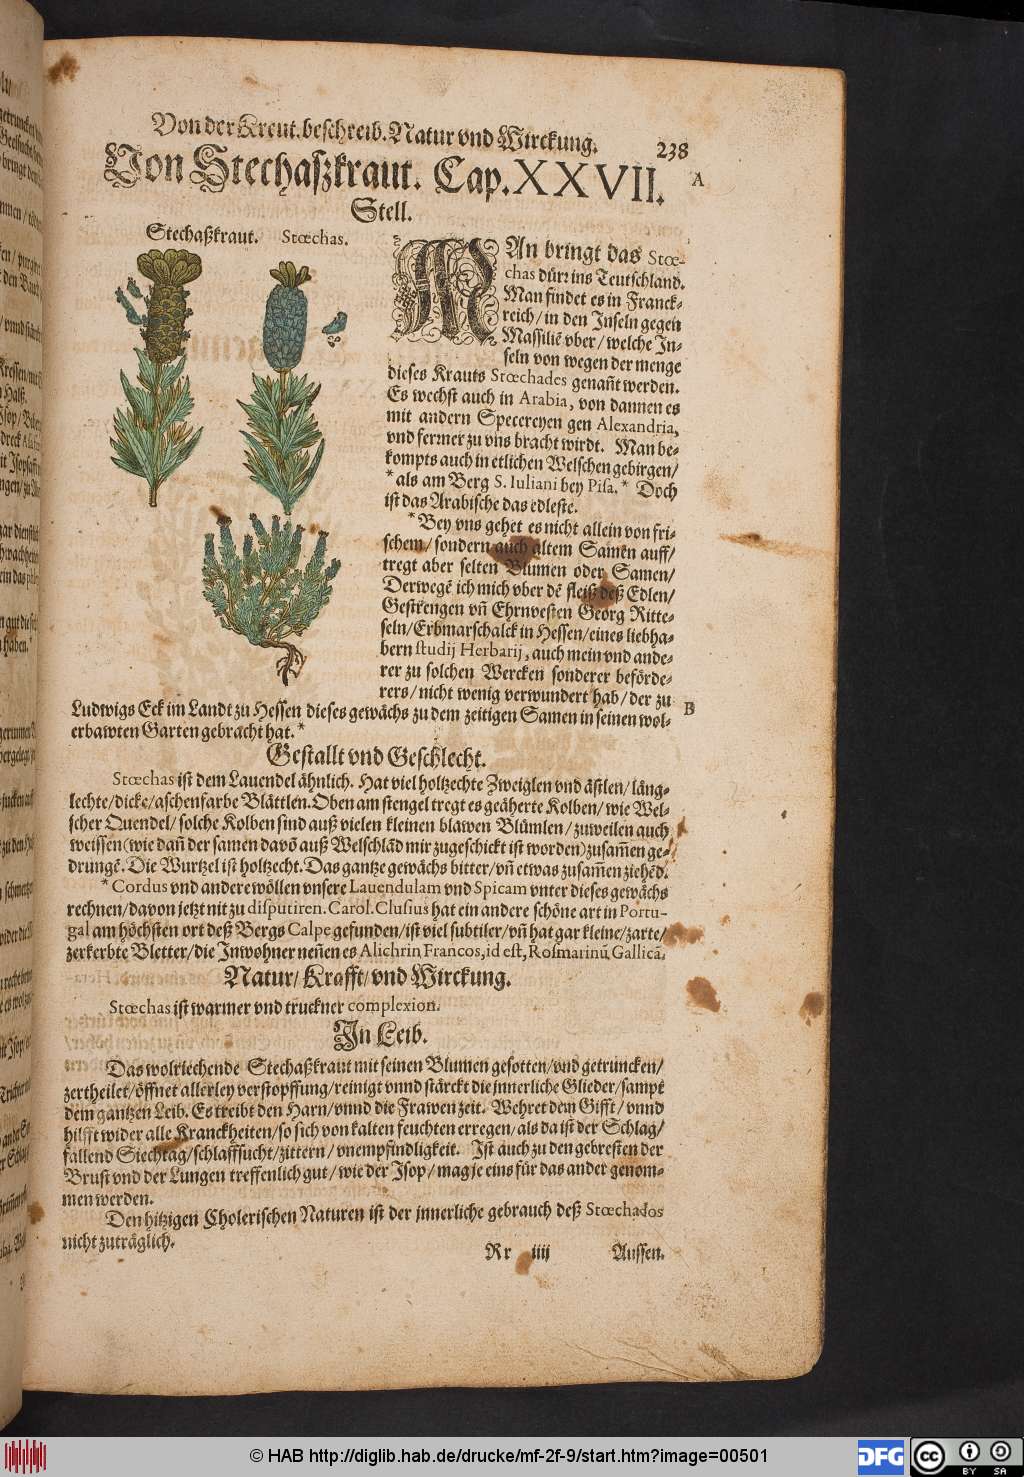 Von der Kreut. beschreib. Natur vnd Wirckung.
238
Von Stechaßkraut. Cap. XXVII.
A
Stell.
Stechaßkraut. Stœchas.
MAn bringt das Stœ-
chas dürr ins Teutschland.
Man findet es in Franck-
reich/ in den Inseln gegen
Massiliē vber/ welche In-
seln von wegen der menge
dieses Krauts Stœchades genañt werden.
Es wechst auch in Arabia, von dannen es
mit andern Specereyen gen Alexandria,
vnd ferrner zu vns bracht wirdt. Man be-
kompts auch in etlichen Welschen gebirgen/
* als am Berg S. Iuliani bey Pisa. * Doch
ist das Arabische das edleste.
* Bey vns gehet es nicht allein von fri-
schem/ sondern auch altem Samen auff/
tregt aber selten Blumen oder Samen/
Derwegē ich mich vber dē fleiß deß Edlen/
Gestrengen vñ Ehrnvesten Georg Ritte-
seln/ Erbmarschalck in Hessen/ eines liebha-
bern studij Herbarij, auch mein vnd ande-
rer zu solchen Wercken sonderer beförde-
rers/ nicht wenig verwundert hab/ der zu
B
Ludwigs Eck im Landt zu Hessen dieses gewächs zu dem zeitigen Samen in seinen wol-
erbawten Garten gebracht hat. *
Gestallt vnd Geschlecht.
Stœchas ist dem Lauendel ähnlich. Hat viel holtzechte Zweiglen vnd ästlen/ läng-
lechte/ dicke/ aschenfarbe Blättlen. Oben am stengel tregt es geäherte Kolben/ wie Wel-
scher Quendel/ solche Kolben sind auß vielen kleinen blawen Blümlen/ zuweilen auch
weissen (wie dañ der samen davō auß Welschlād mir zugeschickt ist worden) zusam̃en ge-
drungē. Die Wurtzel ist holtzecht. Das gantze gewächs bitter/ vñ etwas zusam̃en ziehēd.
* Cordus vnd andere wöllen vnsere Lauendulam vnd Spicam vnter dieses gewächs
rechnen/ davon jetzt nit zu disputiren. Carol. Clusius hat ein andere schöne art in Portu-
gal am höchsten ort deß Bergs Calpe gefunden/ ist viel subtiler/ vñ hat gar kleine/ zarte/
zerkerbte Bletter/ die Inwohner neñen es Alichrin Francos, id est, Rosmarinū Gallicā.
Natur/ Krafft/ vnd Wirckung.
Stœchas ist warmer vnd truckner complexion.
In Leib.
Das wolriechende Stechaßkraut mit seinen Blumen gesotten/ vnd getruncken/
zertheilet/ öffnet allerley verstopffung/ reinigt vnnd stärckt die jnnerliche Glieder/ sampt
dem gantzen Leib. Es treibt den Harn/ vnnd die Frawen zeit. Wehret dem Gifft/ vnnd
hilfft wider alle Kranckheiten/ so sich von kalten feuchten erregen/ als da ist der Schlag/
fallend Siechtag/ schlaffsucht/ zittern/ vnempfindligkeit. Ist auch zu den gebresten der
Brust vnd der Lungen treffenlich gut/ wie der Isop/ mag je eins für das ander genom-
men werden.
Den hitzigen Cholerischen Naturen ist der jnnerliche gebrauch deß Stœchados
nicht zuträglich.
Rr iiij Aussen.
© HAB http://diglib.hab.de/drucke/mf-2f-9/start.htm?image=00501
DFG
CC BY SA